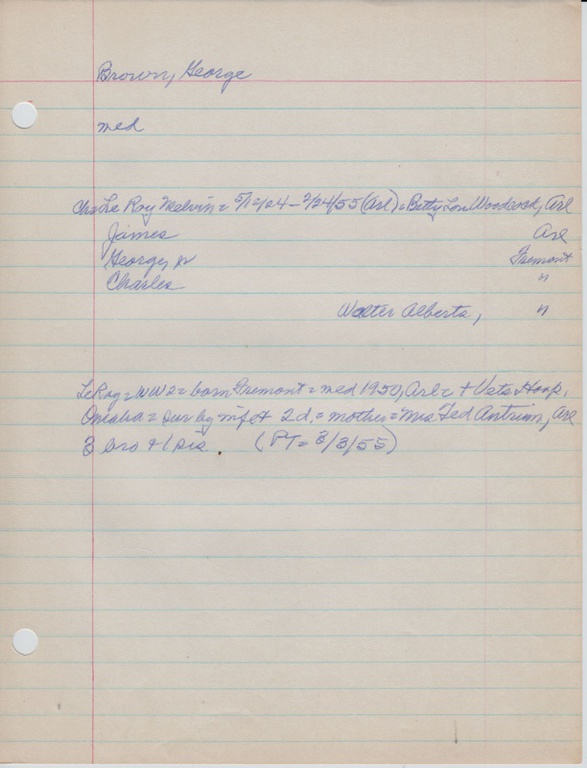 Brown, George
med
Chs Le Roy Melvin = 5/12/24 - 2/24/55 (Arl) = Betty Lou Woodword, Arl
James Arl
George, Jr Fremont
Charles "
Walter Alberts, "
LeRoy = WW2 = born Fremont = med 1950, Arl = + Vets Hosp,
Omaha = sur by wife & 2 d. = mother = Mrs Ted Antrim, Arl
3 bro + 1 sis. (PT = 3/3/55)